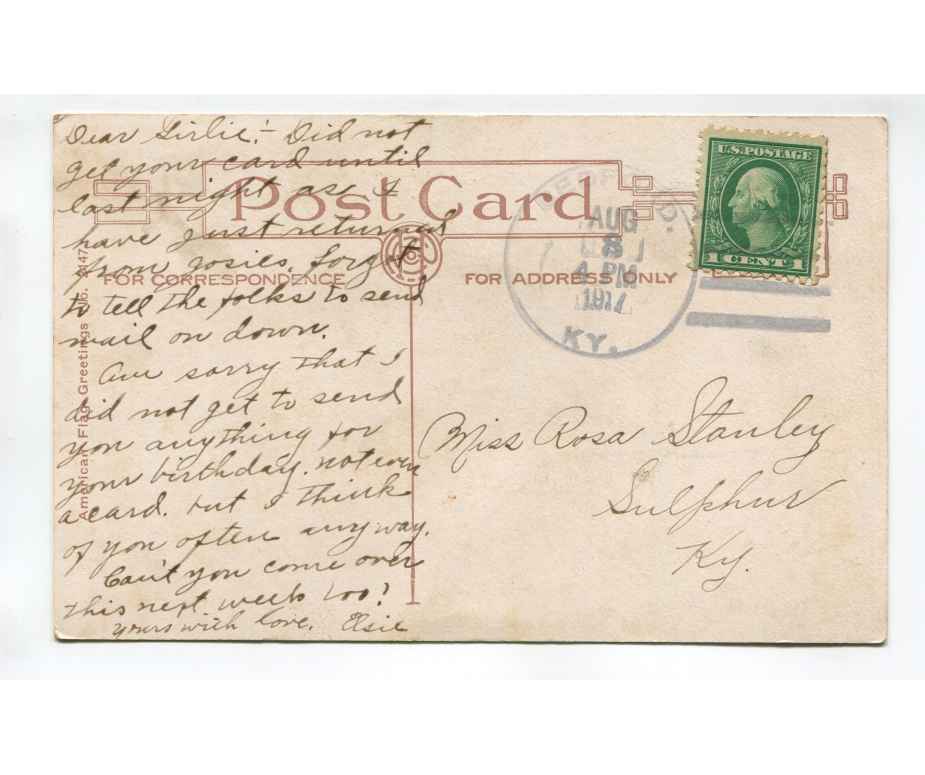 Dear Girlie:- Did not
get your card until
last night as I
have just returned
from Josies. Forgot
to tell the folks to send
mail on down.
Am sorry that I
did not get to send
you anything for
your birthday. not even
a card. but I think
of you often anyway.
Can't you come over
this next week too?
Yours with love. Elsie
Post Card
FOR CORRESPONDENCE
FOR ADDRESS ONLY
American Flag Greetings
U.S. POSTAGE
1 CENT 1
AUG
8
4 PM
KY.
Miss Rosa Stanley
Sulphur
Ky.